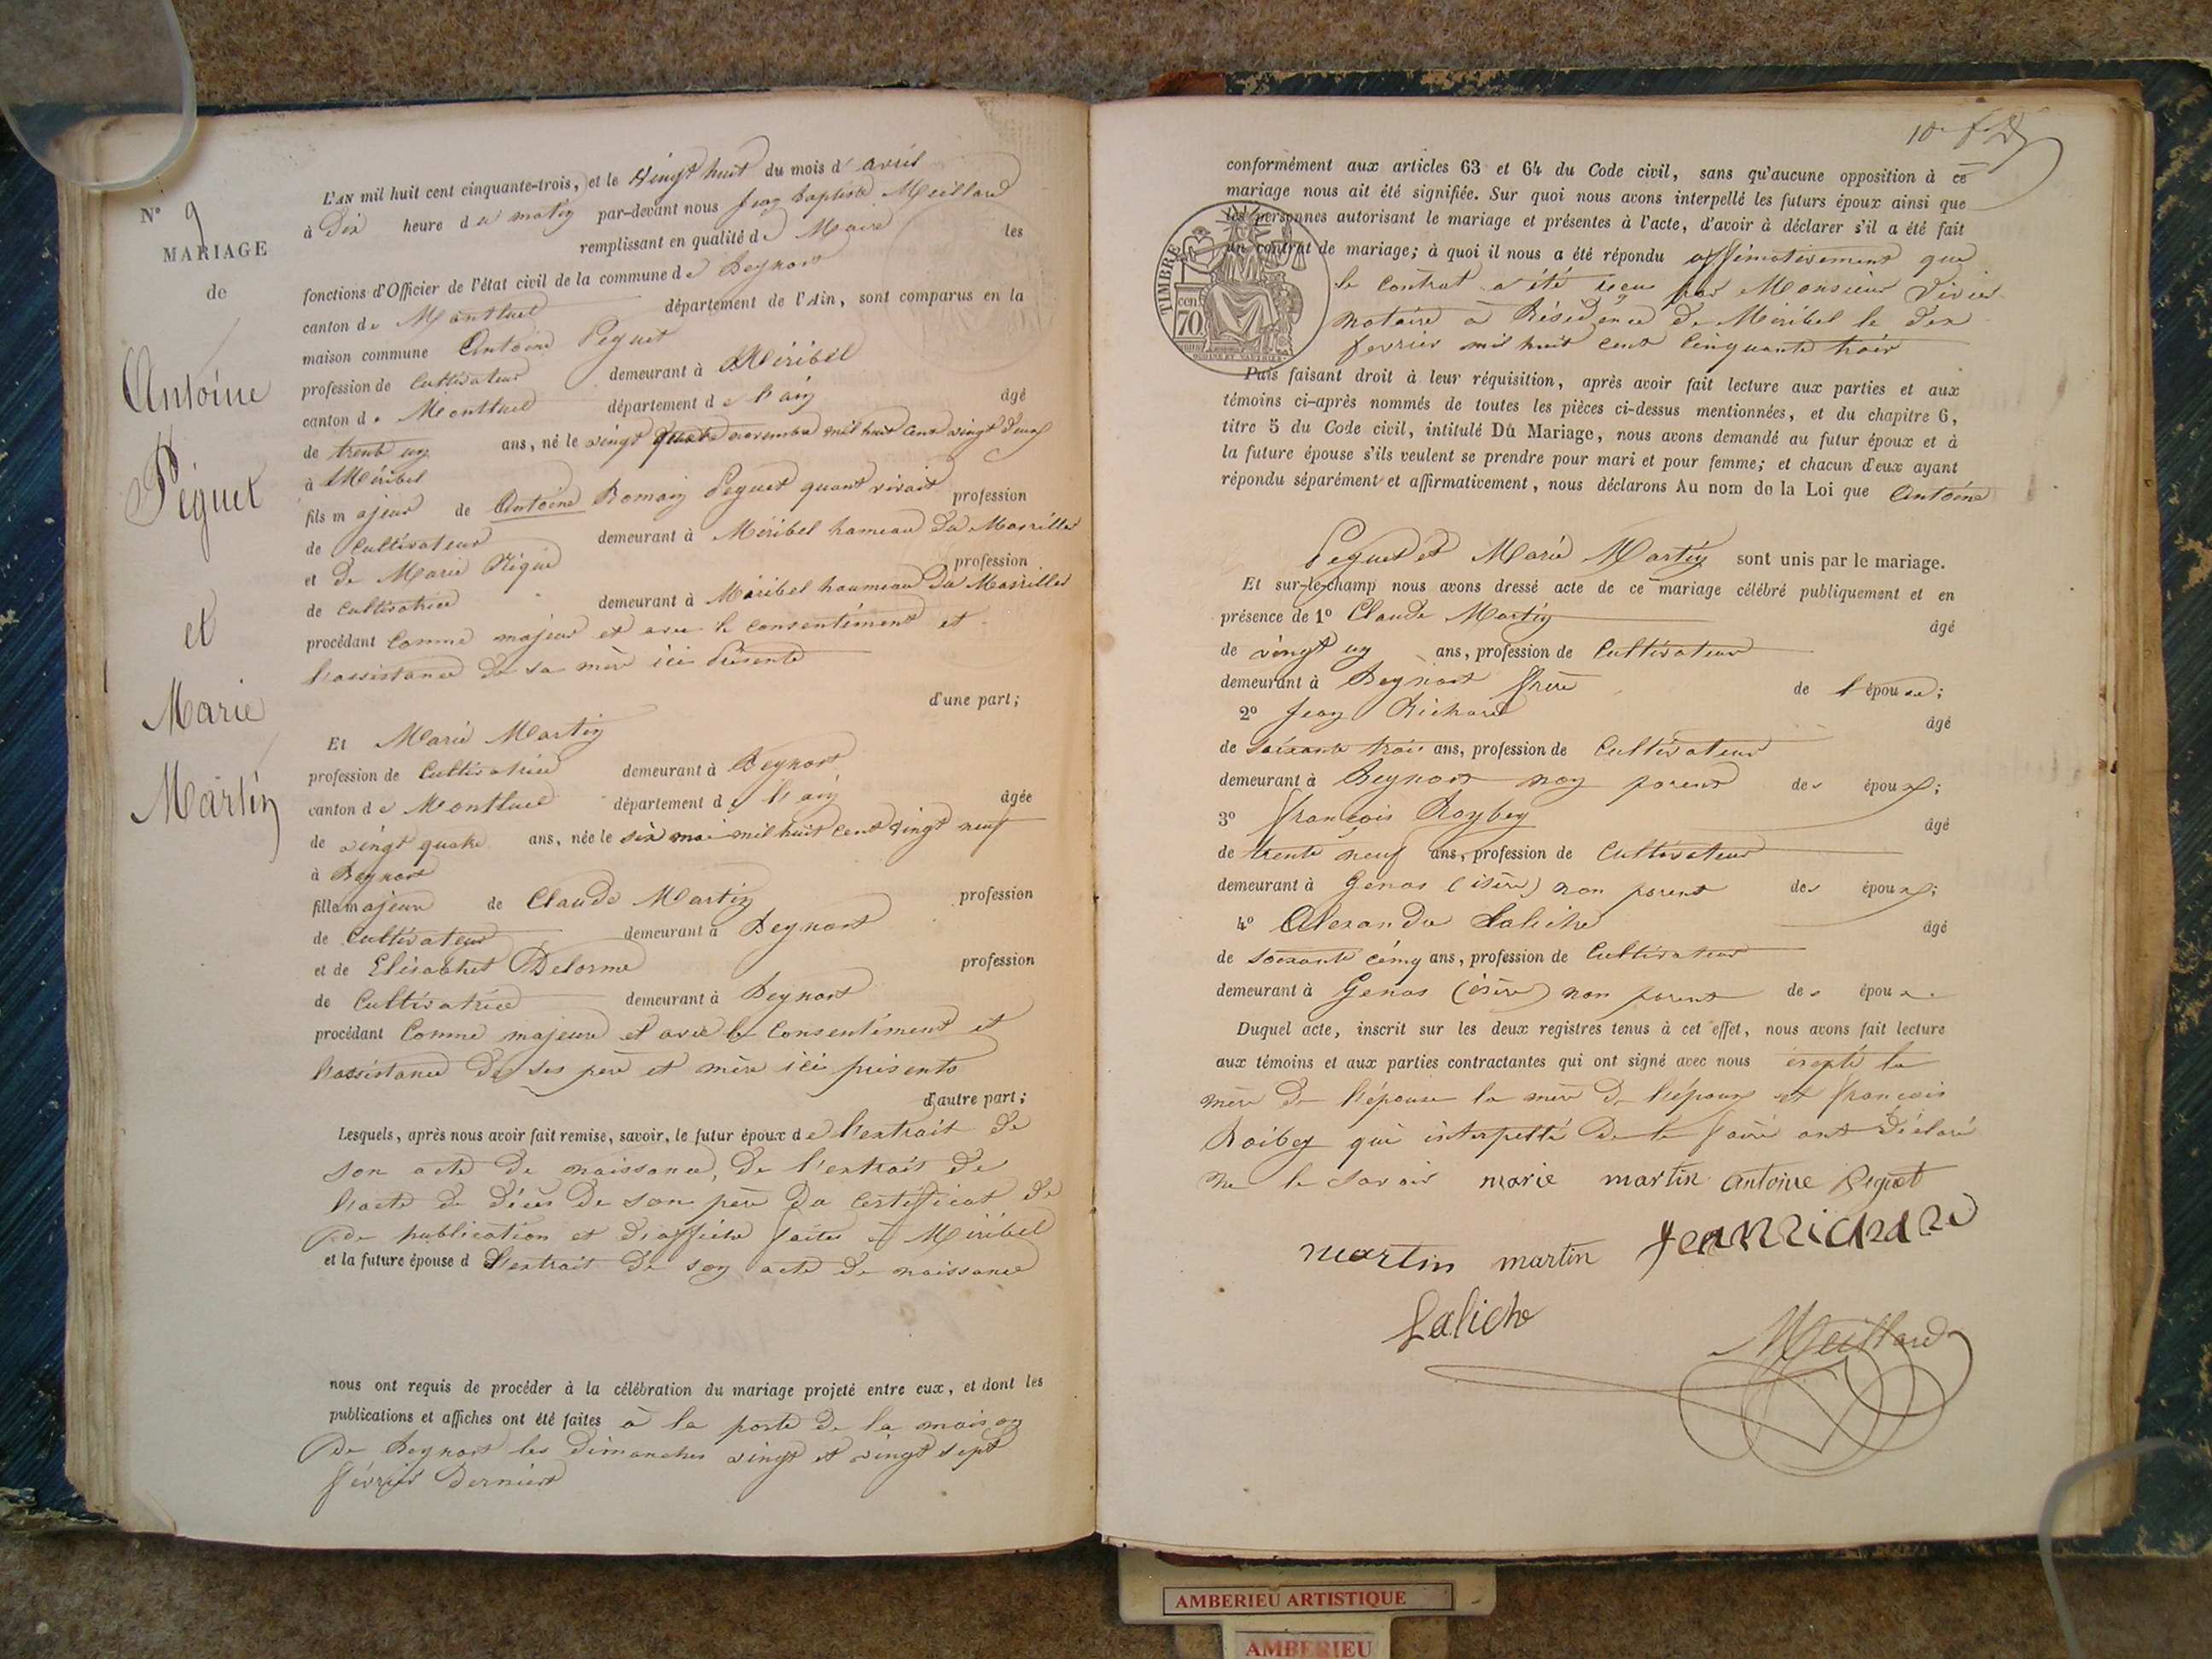 N° 9
MARIAGE
de
Antoine
Péguet
et
Marie
Martin
L'AN mil huit cent cinquante-trois, et le vingt huit du mois d'avril
à Dix heure du matin par-devant nous Jean Baptiste Meillard
remplissant en qualité de Maire les
fonctions d'Officier de l'état civil de la commune de Beynost
canton de Montluel département de l'Ain, sont comparus en la
maison commune Antoine Peguet
profession de Cultivateur demeurant à Miribel
canton de Montluel département de l'ain âgé
de trente un ans, né le vingt quatre novembre mil huit cent vingt deux
à Miribel
fils majeur de Antoine Romain Peguet quant vivait profession
de Cultivateur demeurant à Miribel hameau du
et de Marie profession
de Cultivatrice demeurant à Miribel haumeau Du
procédant Comme majeur et avec le consentement et
l'assistance de sa mère ici Présente
d'une part;
Et Marie Martin
profession de Cultivatrice demeurant à Beynost
canton de Montluel département de l'ain âgée
de vingt quatre ans, née le six mai mil huit cent vingt neuf
à Beynost
fille majeure de Claude Martin profession
de Cultivateur demeurant à Beynost
et de Elisabhet Delorme profession
de Cultivatrice demeurant à Beynost
procédant Comme majeure et avec le Consentement et
l'assistance de ses père et mère ici présents
d'autre part;
Lesquels, après nous avoir fait remise, savoir, le futur époux de l'extrait de
son acte de naissance, de l'extrait de
l'acte de décès de son père du certificat de
de publication et d'affiche faites à Miribel
et la future épouse d l'extrait de son acte de naissance
nous ont requis de procéder à la célébration du mariage projeté entre eux, et dont les
publications et affiches ont été faites à la porte de la maison
de Beynost les dimanches vingt et vingt sept
février Derniert
10
conformément aux articles 63 et 64 du Code civil, sans qu'aucune opposition à ce
mariage nous ait été signifiée. Sur quoi nous avons interpellé les futurs époux ainsi que
les personnes autorisant le mariage et présentes à l'acte, d'avoir à déclarer s'il a été fait
un contrat de mariage; à quoi il nous a été répondu affirmativement que
TIMBRE
cent 70
le contrat a été reçu par Monsieur
notaire à Résidence de Miribel le dix
fevrier mil huit cent Cinquante trois
Puis faisant droit à leur réquisition, après avoir fait lecture aux parties et aux
témoins ci-après nommés de toutes les pièces ci-dessus mentionnées, et du chapitre 6,
titre 5 du Code civil, intitulé Du Mariage, nous avons demandé au futur époux et à
la future épouse s'ils veulent se prendre pour mari et pour femme; et chacun d'eux ayant
répondu séparément et affirmativement, nous déclarons Au nom de la Loi que Antoine
Peguet et Marie Martin sont unis par le mariage.
Et sur-le-champ nous avons dressé acte de ce mariage célébré publiquement et en
présence de 1° Claude Martin âgé
de vingt un ans, profession de Cultivateur
demeurant à Beynost frère de l'épouse;
2° Jean Richard âgé
de soixante trois ans, profession de Cultivateur
demeurant à Beynost non parent des époux;
3° François Roybey âgé
de trente neuf ans, profession de Cultivateur
demeurant à Genas (isère) non parent des époux;
4° Alexandre Laliche âgé
de soixante cinq ans, profession de Cultivateur
demeurant à Genas (isère) non parent des époux.
Duquel acte, inscrit sur les deux registres tenus à cet effet, nous avons fait lecture
aux témoins et aux parties contractantes qui ont signé avec nous excepté la
mère de l'épouse la mère de l'époux et françois
Roibey qui interpellé de le faire ont déclaré
ne le savoir marie martin antoine peguet
martin martin jean Richard
Laliche
Meillard
AMBERIEU ARTISTIQUE
AMBERIEU